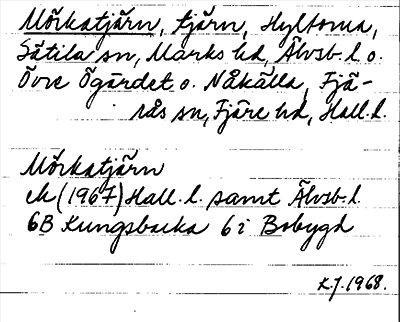 Mörkatjärn, tjärn, Hyltorna,
Sätila sn, Marks hd, Älvsb. l. o.
Övre Ögärdet o. Nåkälla, Fjä-
rås sn, Fjäre hd, Hall. l.
Mörkatjärn
ek (1967) Hall. l. samt Älvsb. l.
6B Kungsbacka 6i Bobygd
K.J. 1968.